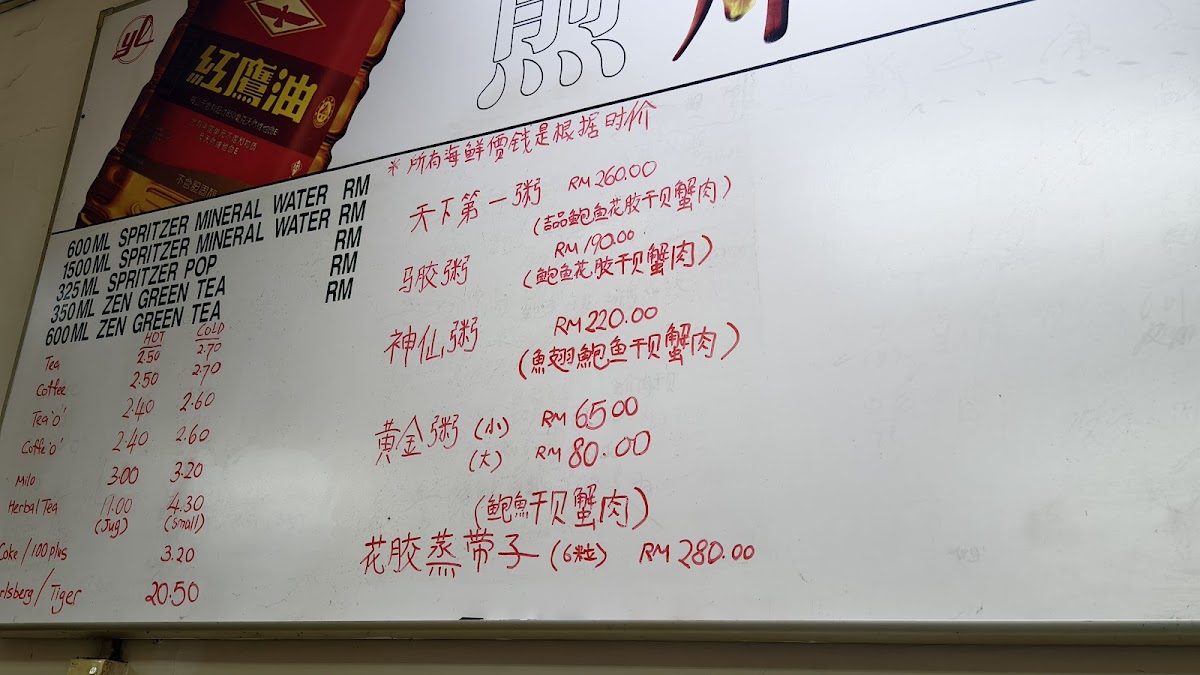 yl
紅鷹油
不含胆固醇
煎
600ML SPRITZER MINERAL WATER RM
1500ML SPRITZER MINERAL WATER RM
325ML SPRITZER POP RM
350ML ZEN GREEN TEA RM
600ML ZEN GREEN TEA RM
HOT COLD
Tea 2.50 2.70
Coffee 2.50 2.70
Tea'o' 2.40 2.60
Coffe'o' 2.40 2.60
Milo 3.00 3.20
Herbal Tea 11.00 4.30
(Jug) (small)
Coke / 100 plus 3.20
rlsberg / Tiger 20.50
* 所有海鲜價钱是根据时价
天下第一粥 RM 260.00
(吉品鲍鱼花胶干贝蟹肉)
马胶粥 RM 190.00
(鲍鱼花胶干贝蟹肉)
神仙粥 RM 220.00
(魚翅鮑鱼干贝蟹肉)
黄金粥 (小) RM 65.00
(大) RM 80.00
(鲍魚干贝蟹肉)
花胶蒸带子 (6粒) RM 280.00